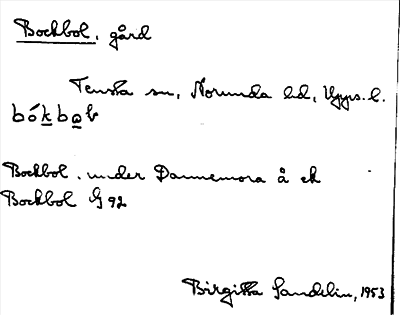 Bockbol, gård
Tensta sn, Norunda hd, Upps. l.
bókbo
Bockbol. under Dannemora å ek
Bockbol G 92
Birgitta Sandelin, 1953